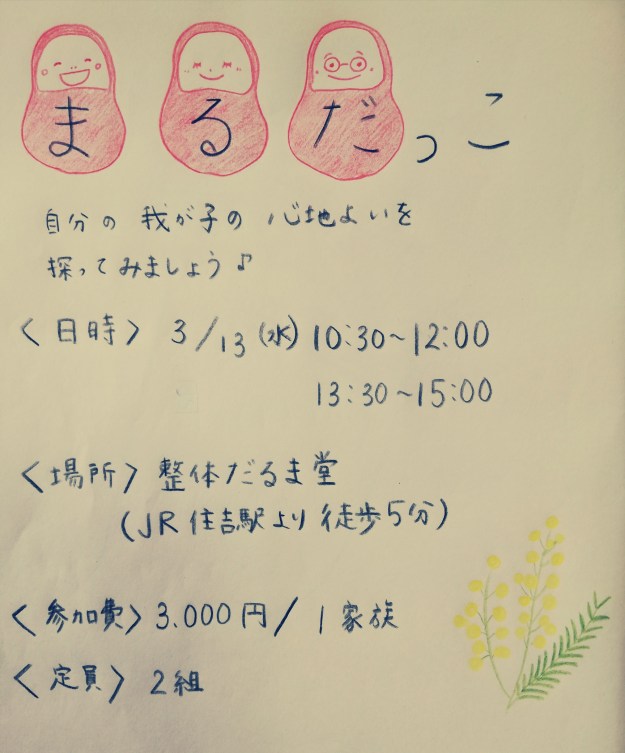 まるだっこ
自分の 我が子の 心地よいを
探ってみましょう♪
〈日時〉 3/13(水) 10:30~12:00
13:30~15:00
〈場所〉 整体だるま堂
(JR住吉駅より 徒歩5分)
〈参加費〉 3.000円/1家族
〈定員〉 2組